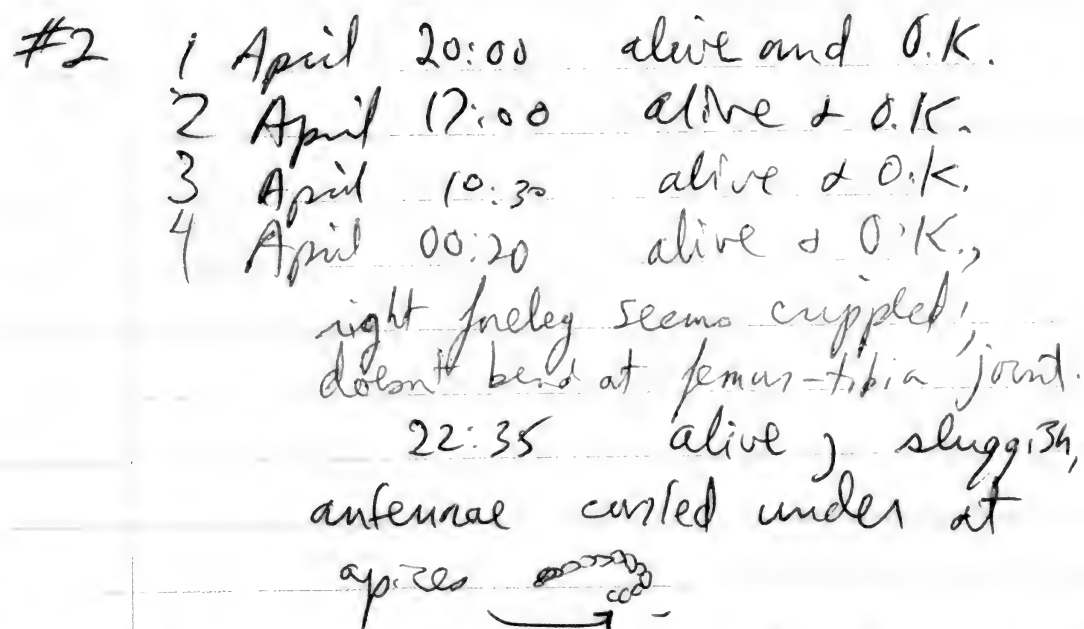 #2 1 April 20:00 alive and O.K.
2 April 17:00 alive & O.K.
3 April 10:30 alive & O.K.
4 April 00:20 alive & O.K.,
right foreleg seems crippled;
doesn't bend at femur-tibia joint.
22:35 alive, sluggish,
antennae curled under at
apices